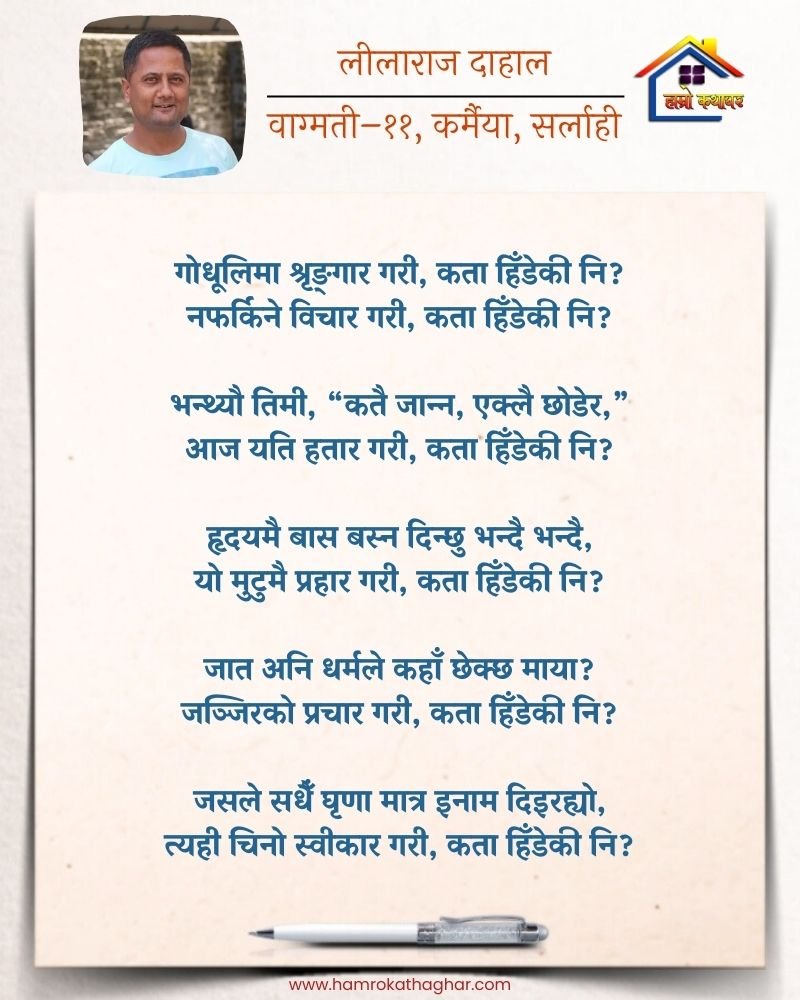 लीलाराज दाहाल
वाग्मती–११, कर्मैया, सर्लाही
हाम्रो कथाघर
गोधूलिमा श्रृङ्गार गरी, कता हिँडेकी नि?
नफर्किने विचार गरी, कता हिँडेकी नि?
भन्थ्यौ तिमी, “कतै जान्न, एक्लै छोडेर,”
आज यति हतार गरी, कता हिँडेकी नि?
हृदयमै बास बस्न दिन्छु भन्दै भन्दै,
यो मुटुमै प्रहार गरी, कता हिँडेकी नि?
जात अनि धर्मले कहाँ छेक्छ माया?
जञ्जिरको प्रचार गरी, कता हिँडेकी नि?
जसले सधैँ घृणा मात्र इनाम दिइरह्यो,
त्यही चिनो स्वीकार गरी, कता हिँडेकी नि?
www.hamrokathaghar.com